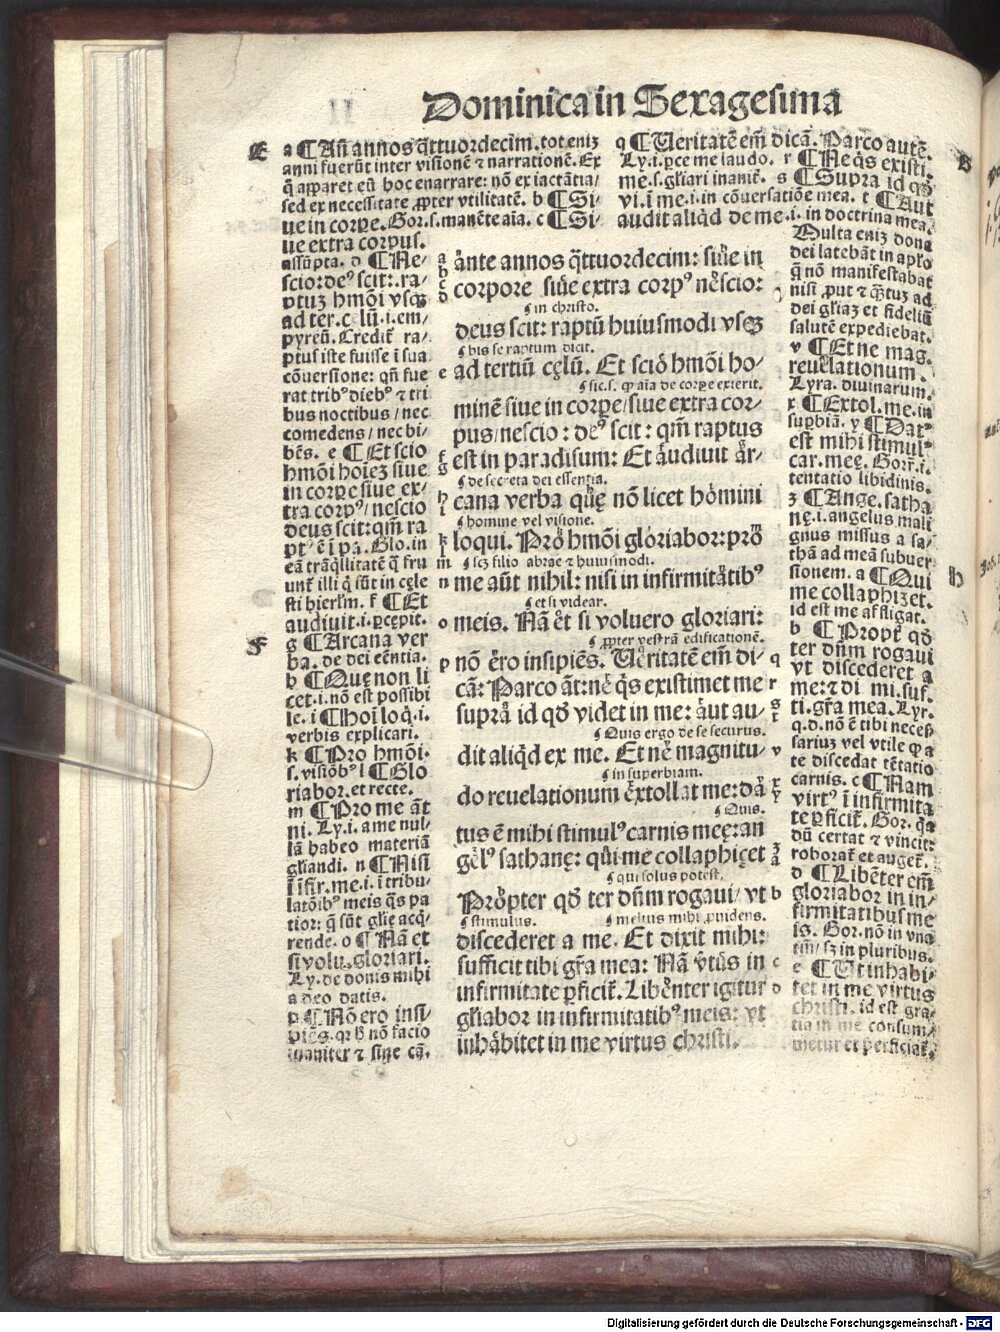 Dominica in Sexagesima
E
a ¶ Añ annos q̃ttuordecim. tot eniz
anni fuerūt inter visionē ⁊ narrationē. Ex
q̃ apparet eū hoc enarrare: nō ex iactātia/
sed ex necessitate ꝓpter vtilitatē. b ¶ Si-
ue in corpe. Gor. s. manēte aīa. c ¶ Si-
ue extra corpus.
assūpta. d ¶ Ne/
scio: deꝰ scit: ra/
ptuz hmōi vsqꝫ
ad ter. c̨lū. i. em/
pyreū. Credit̄ ra/
ptus iste fuisse ī sua
cōuersione: qn̄ fue
rat tribꝰ diebꝰ ⁊ tri
bus noctibus / nec
comedens / nec bi/
bēs. e ¶ Et scio
hmōi hoiez siue
in corpe siue ex/
tra corpꝰ / nescio
deus scit: qm̄ ra
ptꝰ ē ī pa. Glo. in
eā trāq̃llitatē q̃ fru
unt̄ illi q̇ sūt in cęle
sti hierl̄m. f ¶ Et
audiuit. i. ꝑcepit.
F
g ¶ Arcana ver
ba. de dei eēntia.
h ¶ Quę non li
cet. i. nō est possibi
le. i ¶ Hoī loq̇. i.
verbis explicari.
k ¶ Pro hmōi.
s. visiōbꝰ l ¶ Glo
riabor. et recte.
m ¶ Pro me āt
ni. Ly. i. a me nul/
lā habeo materiā
gl̄iandi. n ¶ Nisi
ī īfir. me. i. ī tribu/
latōibꝰ meis q̃s pa
tior: q̃ sūt gl̄ie acq̇/
rende. o ¶ Nā et
si volu. gloriari.
Ly. de donis mihi
a deo datis.
p ¶ Nō ero insi/
piēs. qr h̄ nō facio
inaniter ⁊ sine cā.
a
b
c
d
ante annos q̃ttuordecim: siue in
corpore siue extra corpꝰ nescio:
¶ in christo.
deus scit: raptū huiusmodi vsqꝫ
¶ bis se raptum dicit.
e
ad tertiū cęlū. Et scio hmōi ho/
¶ sic. s. ꝙ aīa de corpe exierit.
minē siue in corpe / siue extra cor-
pus / nescio: deꝰ scit: qm̄ raptus
f
g
est in paradisum: Et audiuit ar/
¶ de secreta dei essentia.
h
i
cana verba quę nō licet homini
¶ homine vel visione.
k
l
loqui. Pro hmōi gloriabor: pro
m
¶ scꝫ filio abrae ⁊ huiusmodi.
n
me aūt nihil: nisi in infirmitatibꝰ
¶ et si videar.
o
meis. Nā et si voluero gloriari:
¶ ꝓpter vestrā edificationē.
p
nō ero insipiēs. Veritatē em̄ di/
q
cā: Parco āt: ne q̇s existimet me
r
supra id qd̄ videt in me: aut au/
s
t
¶ Quis ergo de se securus.
dit aliq̇d ex me. Et ne magnitu/
v
¶ in superbiam.
do reuelationum extollat me: da
x
y
¶ Quis.
tus ē mihi stimulꝰ carnis meę: an
gelꝰ sathanę: qui me collaphizet
z
a
¶ qui solus potest.
Propter qd̄ ter dn̄m rogaui / vt
b
¶ stimulus.
¶ melius mihi ꝓuidens.
discederet a me. Et dixit mihi:
sufficit tibi gr̄a mea: Nā v̄tus in
c
infirmitate ꝑficit̄. Libenter igitur
d
gl̄iabor in infirmitatibꝰ meis: vt
inhabitet in me virtus christi.
q ¶ Veritatē em̄ dicā. Parco autē.
Ly. i. ꝑce me laudo. r ¶ Ne q̇s existi.
me. s. gl̄iari inanit̄. s ¶ Supra id qd̄
vi. ī me. i. in cōuersatiōe mea. t ¶ Aut
audit aliq̇d de me. i. in doctrina mea.
B
Multa eniz dona
dei latebāt in aplo
q̃ nō manifestabat
nisi ꝓut ⁊ q̃tuꝫ ad
dei gl̄iaꝫ et fideliū
salutē expediebat.
v ¶ Et ne mag.
reuelationum.
Lyra. diuinarum.
x ¶ Extol. me. in
supbiā. y ¶ Datꝰ
est mihi stimulꝰ
car. meę. Gorr̄. i.
tentatio libidinis.
z ¶ Ange. satha
nę. i. angelus mali
gnus missus a sa/
thā ad meā subuer
sionem. a ¶ Qui
h
me collaphizet.
id est me affligat.
b ¶ Propt̄ qd̄
ter dn̄m rogaui
vt discederet a
me: ⁊ di mi. suf.
ti. gr̄a mea. Lyr.
q. d. nō ē tibi neces
sariuz vel vtile ꝙ a
te discedat tētatio
carnis. c ¶ Nam
virtꝰ ī infirmita
te ꝑficit̄. Gor. qa
dū certat ⁊ vincit:
roborat̄ et auget̄.
d ¶ Libēter em̄
gloriabor in in/
firmitatibus me
is. Gor. nō in vna
tm̄ / sꝫ in pluribus.
e ¶ Vt inhabi/
tet in me virtus
christi. id est gra/
tia in me consum/
metur et perficiat̄.
Digitalisierung gefördert durch die Deutsche Forschungsgemeinschaft - DFG